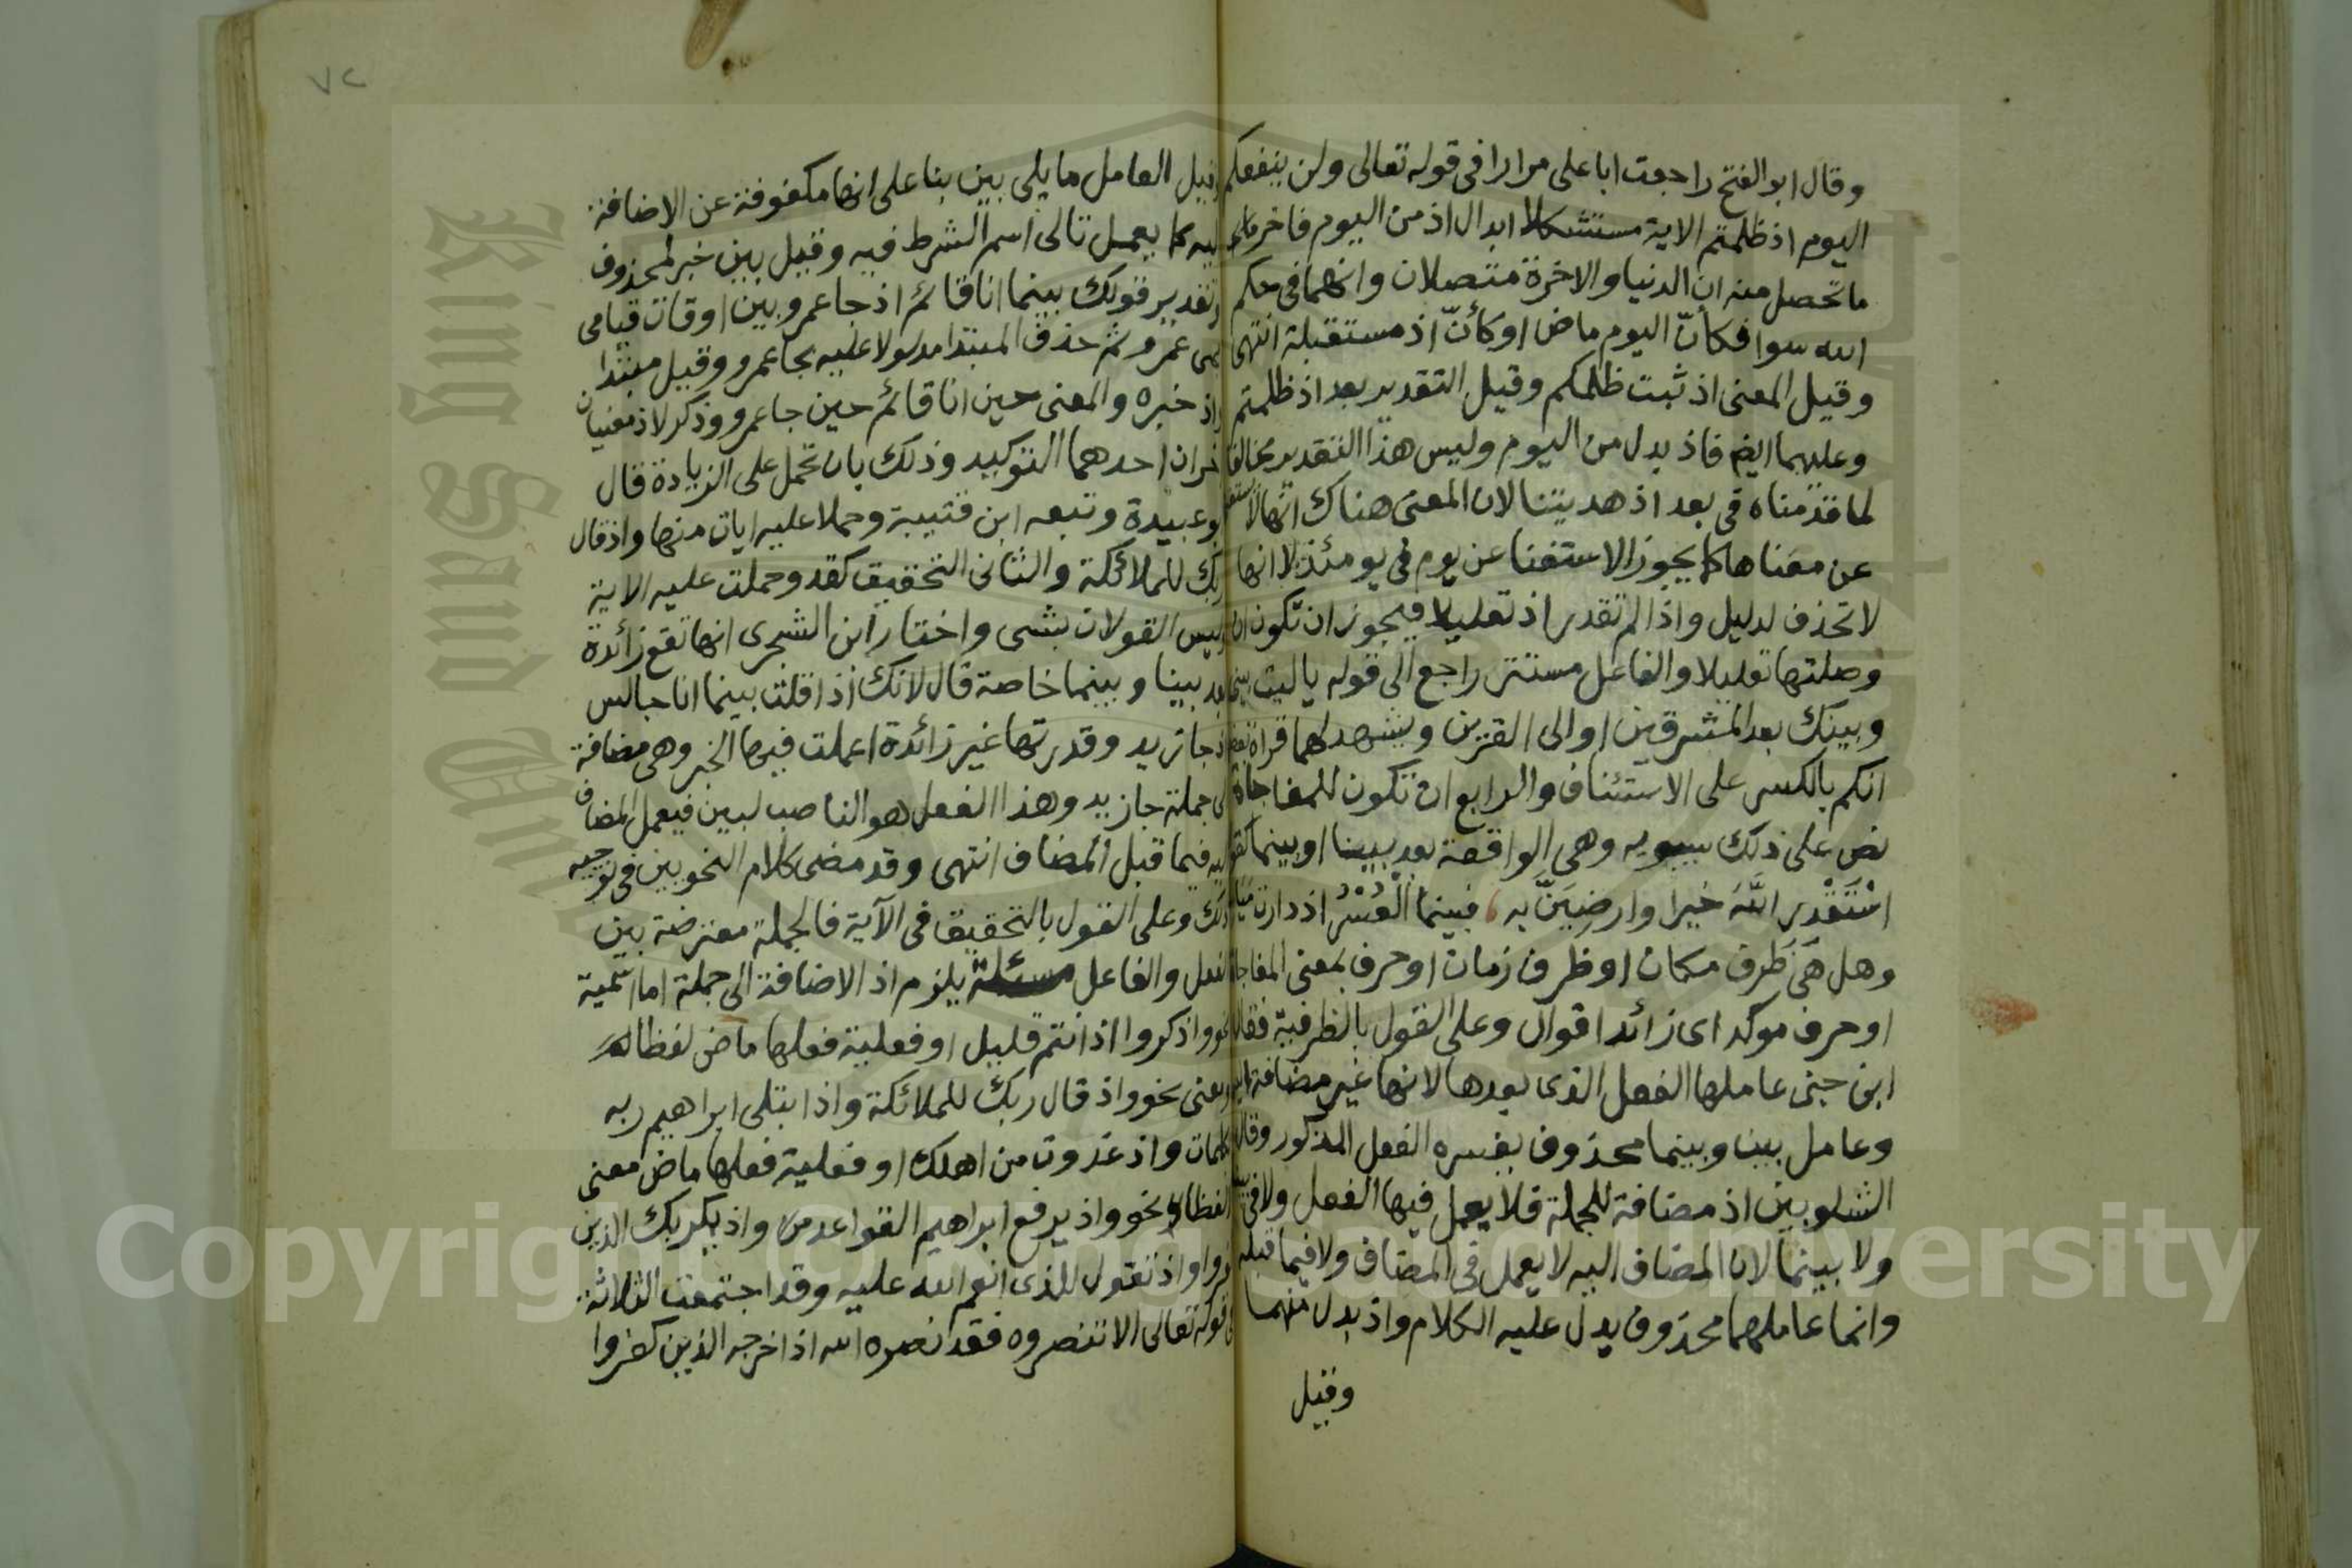 وقال ابو الفتح راجعت ابا على مرارا فى قوله تعالى ولن ينفعكم
اليوم اذ ظلمتم الاية مستشكلا ابدال اذ من اليوم فاخر
ما تحصل منه ان الدنيا والاخرة متصلان وانهما فى حكم
الله سوا فكأنّ اليوم ماض او كأنّ اذ مستقبلة انتهى
وقيل المعنى اذ ثبت ظلمكم وقيل التقدير بعد اذ ظلمتم
وعليهما ايضم فاذ بدل من اليوم وليس هذا التقدير مخالفا
لما قدمناه فى بعد اذ هديتنا لان المعنى هناك انها لا
عن معناها كما يجوز الاستغنا عن يوم فى يومئذ لا انها
لا تحذف لدليل واذا لم تقدر اذ تعليلا فيجوز ان تكون ان
وصلتها تعليلا والفاعل مستتر راجع الى قوله ياليت بينى
وبينك بعد المشرقين او الى القرين ويشهد لهما قراة بعضهم
انكم بالكسر على الاستئناف والرابع ان تكون للمفاجاة
نص على ذلك سيبويه وهى الواقعة بعد بينا او بينما كقوله
اسْتَقْدِر اللَّهَ خيرا وارضيَنَّ به ، فبينما الْعُسْرُ اذ دارت مياسير
وهل هى ظرف مكان او ظرف زمان او حرف بمعنى المفاجاة
او حرف موكد اى زائد اقوال وعلى القول بالظرفية فقال
ابن جنى عاملها الفعل الذى بعدها لانها غير مضافة اليه
وعامل بينا وبينما محذوف يفسره الفعل المذكور وقال
الشلوبين اذ مضافة للجملة فلا يعمل فيها الفعل ولا فى بينا
ولا بينما لان المضاف اليه لا يعمل فى المضاف ولا فيما قبله
وانما عاملهما محذوف يدل عليه الكلام واذ بدل منهما
وقيل
وقيل العامل ما يلى بين بنا على انها مكفوفة عن الاضافة
اليه كما يعمل تالى اسم الشرط فيه وقيل بين خبر لمحذوف
وتقدير قولك بينما انا قائم اذ جا عمرو بين اوقات قيامى
مجى عمرو ثم حذف المبتدا مدلولا عليه بجا عمرو وقيل مبتدا
واذ خبره والمعنى حين انا قائم حين جا عمرو وذكر لاذ معنيان
اخران احدهما التوكيد وذلك بان تحمل على الزيادة قال
ابو عبيدة وتبعه ابن قتيبة وحملا عليه ايات منها واذ قال
ربك للملائكة والثانى التحقيق كقد وحملت عليه الاية
وليس القولان بشى واختار ابن الشجرى انها تقع زائدة
بعد بينا وبينما خاصة قال لانك اذا قلت بينما انا جالس
اذ جا زيد وقدرتها غير زائدة اعملت فيها الخبر وهى مضافة
الى جملة جا زيد وهذا الفعل هو الناصب لبين فيعمل المضاف
اليه فيما قبل المضاف انتهى وقد مضى كلام النحويين فى توجيه
ذلك وعلى القول بالتحقيق فى الآية فالجملة معترضة بين
الفعل والفاعل مسئلة يلزم اذ الاضافة الى جملة اما اسمية
نحو واذكروا اذ انتم قليل او فعلية فعلها ماض لفظا
ومعنى نحو واذ قال ربك للملائكة واذ ابتلى ابراهيم ربه
بكلمات واذ غدوت من اهلك او فعلية فعلها ماض معنى
لا لفظا نحو واذ يرفع ابراهيم القواعد من واذ يمكر بك الذين
كفروا واذ تقول للذى انعم الله عليه وقد اجتمعت الثلاثة
فى قوله تعالى الا تنصروه فقد نصره الله اذ اخرجه الذين كفروا
٧٢
King Saud University
Copyright © King Saud University